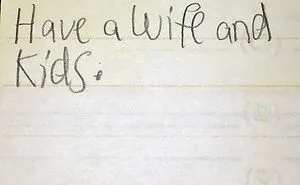 Have a Wife and
Kids.